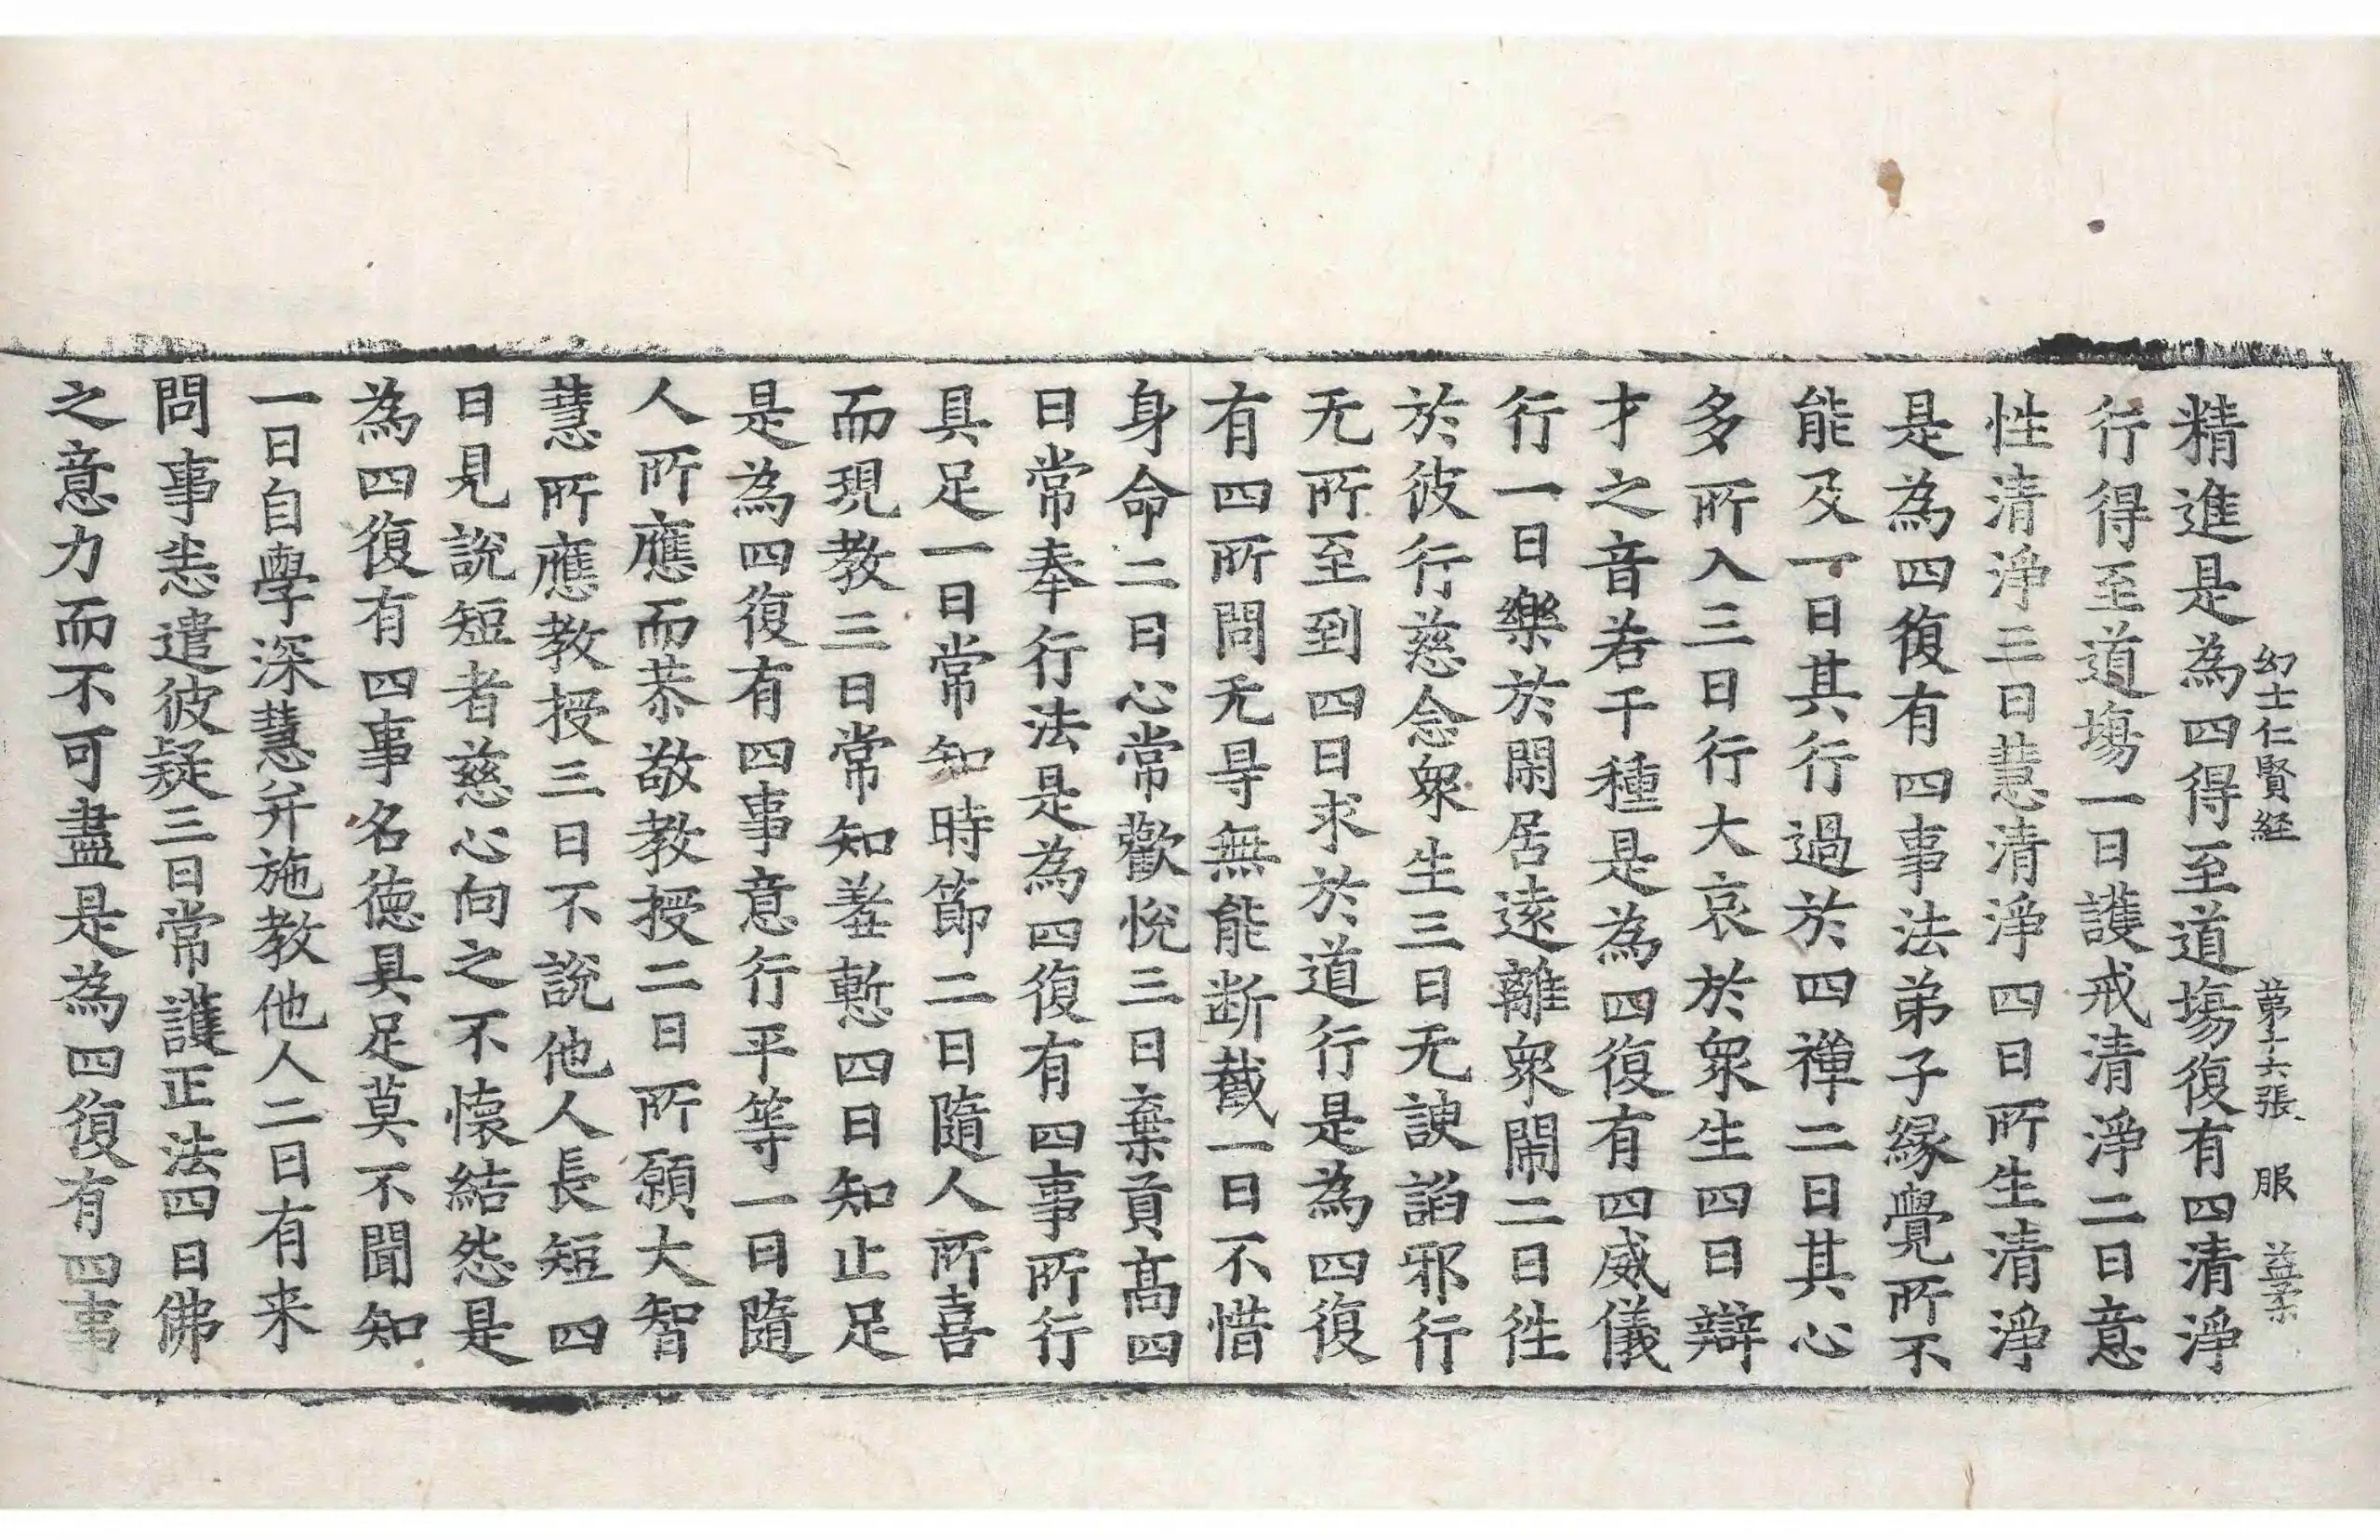 精進是為四得至道場復有四清淨
幻士仁賢経 第十六張 服
行得至道場一曰護戒清淨二曰意
性清淨三曰慧清淨四曰所生清淨
是為四復有四事法弟子緣覺所不
能及一曰其行過於四禪二曰其心
多所入三曰行大哀於眾生四曰辯
才之音若干種是為四復有四威儀
行一曰樂於閑居遠離眾鬧二曰徃
於彼行慈念眾生三曰无諛諂邪行
无所至到四曰求於道行是為四復
有四所問无㝵無能断截一曰不惜
身命二曰心常歡悅三曰棄貢髙四
曰常奉行法是為四復有四事所行
具足一曰常知時節二曰隨人所喜
而現教三曰常知羞慙四曰知止足
是為四復有四事意行平等一曰隨
人所應而恭敬教授二曰所願大智
慧所應教授三曰不說他人長短四
曰見說短者慈心向之不懷結怨是
為四復有四事名德具足莫不聞知
一曰自學深慧并施教他人二曰有来
問事恚遣彼疑三曰常護正法四曰佛
之意力而不可盡是為四復有四事